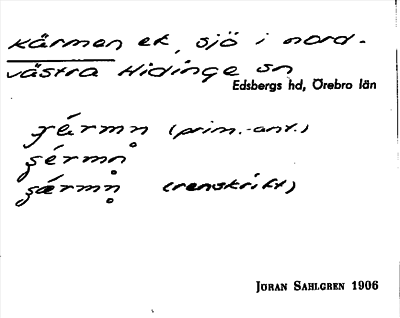 Kärmen ek, sjö i nord-
västra Hidinge sn
Edsbergs hd, Örebro län
jármn̥ (prim.-ant.)
ʂérmn̥
ʂǽrmn̥ (renskrift)
JÖRAN SAHLGREN 1906